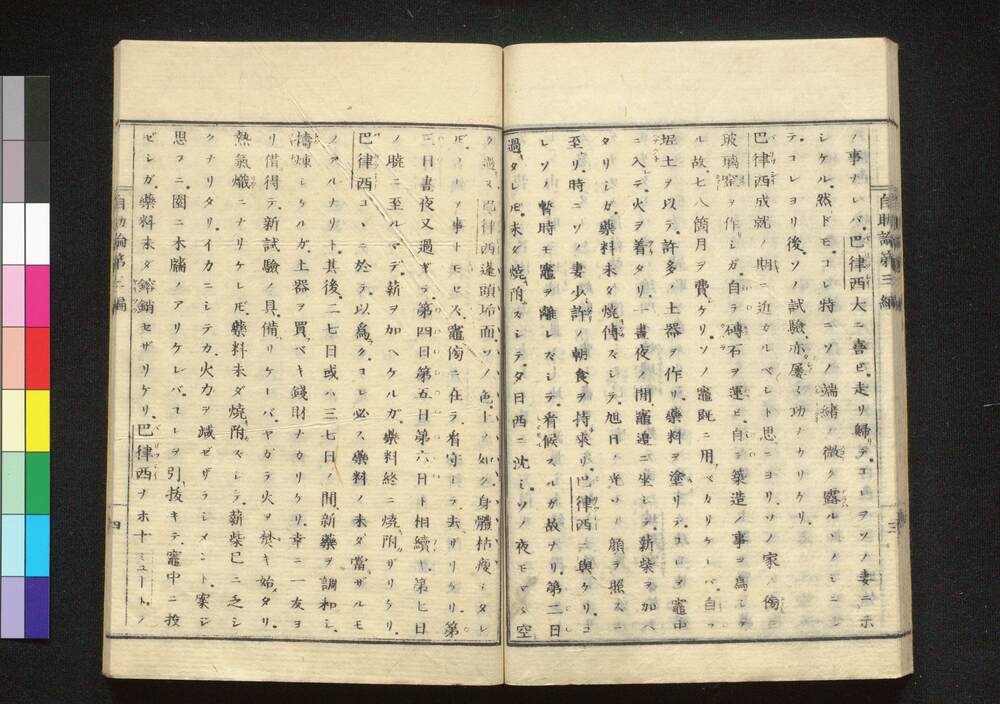 自助論第三編
三
ノ事ナレバ、巴律西大ニ喜ビ、走リ歸テコレヲソノ妻ニ示
シケル、然ドモコレ特ニソノ端緒ノ微ク露ルヽノミニシ
テ、コレヨリ後、ソノ試驗、亦屢〻功ナケリケリ、
巴律西成就ノ期ニ迫カルベシト思ニヨリ、ソノ家ノ傍ニ
玻璃窰ヲ作シガ、自ラ磚石ヲ運ビ、自ラ築造ノ事ヲ爲シタ
ル故、七八箇月ヲ費ケリ、ソノ竈既ニ用ベカリケーバ、自ラ
埿土ヲ以テ、許多ノ土器ヲ作リ、藥料ヲ塗リテ、コレヲ竈中
ニ入テ火ヲ着タリ、一晝夜ノ間竈邊ニ坐シテ、薪柴ヲ加ヘ
タリシガ、藥料未ダ燒傳ズシテ、旭日ノ光ワガ顏ヲ照スニ
至リ、時ニソノ妻少許ノ朝食ヲ持來リ、巴律西ニ與ケリ、コ
レソノ暫時モ竈ヲ離レズシテ、看候スルガ故ナリ、第二日
過タレ𪜈、未ダ燒附ズシテ、夕日西ニ沈ミ、ソノ夜モマタ空
ク過ヌ、巴律西蓬頭垢面、ソノ色土ノ如ク、身體枯瘦シタレ
𪜈、コレヲ事トモセズ、竈傍ニ在テ看守シテ去ザリケリ、第
三日晝夜又過ギテ、第四日第五日第六日ト相續キ、第七日
ノ曉ニ至ルマデ、薪ヲ加ヘケルガ、藥料終ニ燒附ザリケリ、
巴律西コヽニ於テ、以爲ク、コレ必ズ藥料ノ未ダ當ザルモ
ノアルナリト、其後、二七日或ハ三七日ノ間、新藥ヲ調和シ、
擣煉シケルガ、土器ヲ買ベキ錢財ナカリケリ、幸ニ一友ヨ
リ借得テ、新試驗ノ具備リケーバ、ヤガテ火ヲ焚キ始タリ、
熱氣熾ニナリケレ𪜈、藥料未ダ燒附ズシテ、薪柴已ニ乏シ
クナリタリ、イカニシテカ、火力ヲ減ゼザラシメント、案ジ
思フニ、園ニ木牆ノアリケレバ、コレヲ引拔キテ、竈中ニ投
ゼシガ、藥料未ダ鎔銷セザリケリ、巴律西ナホ十ミニュート、ノ
自助論第三編
四